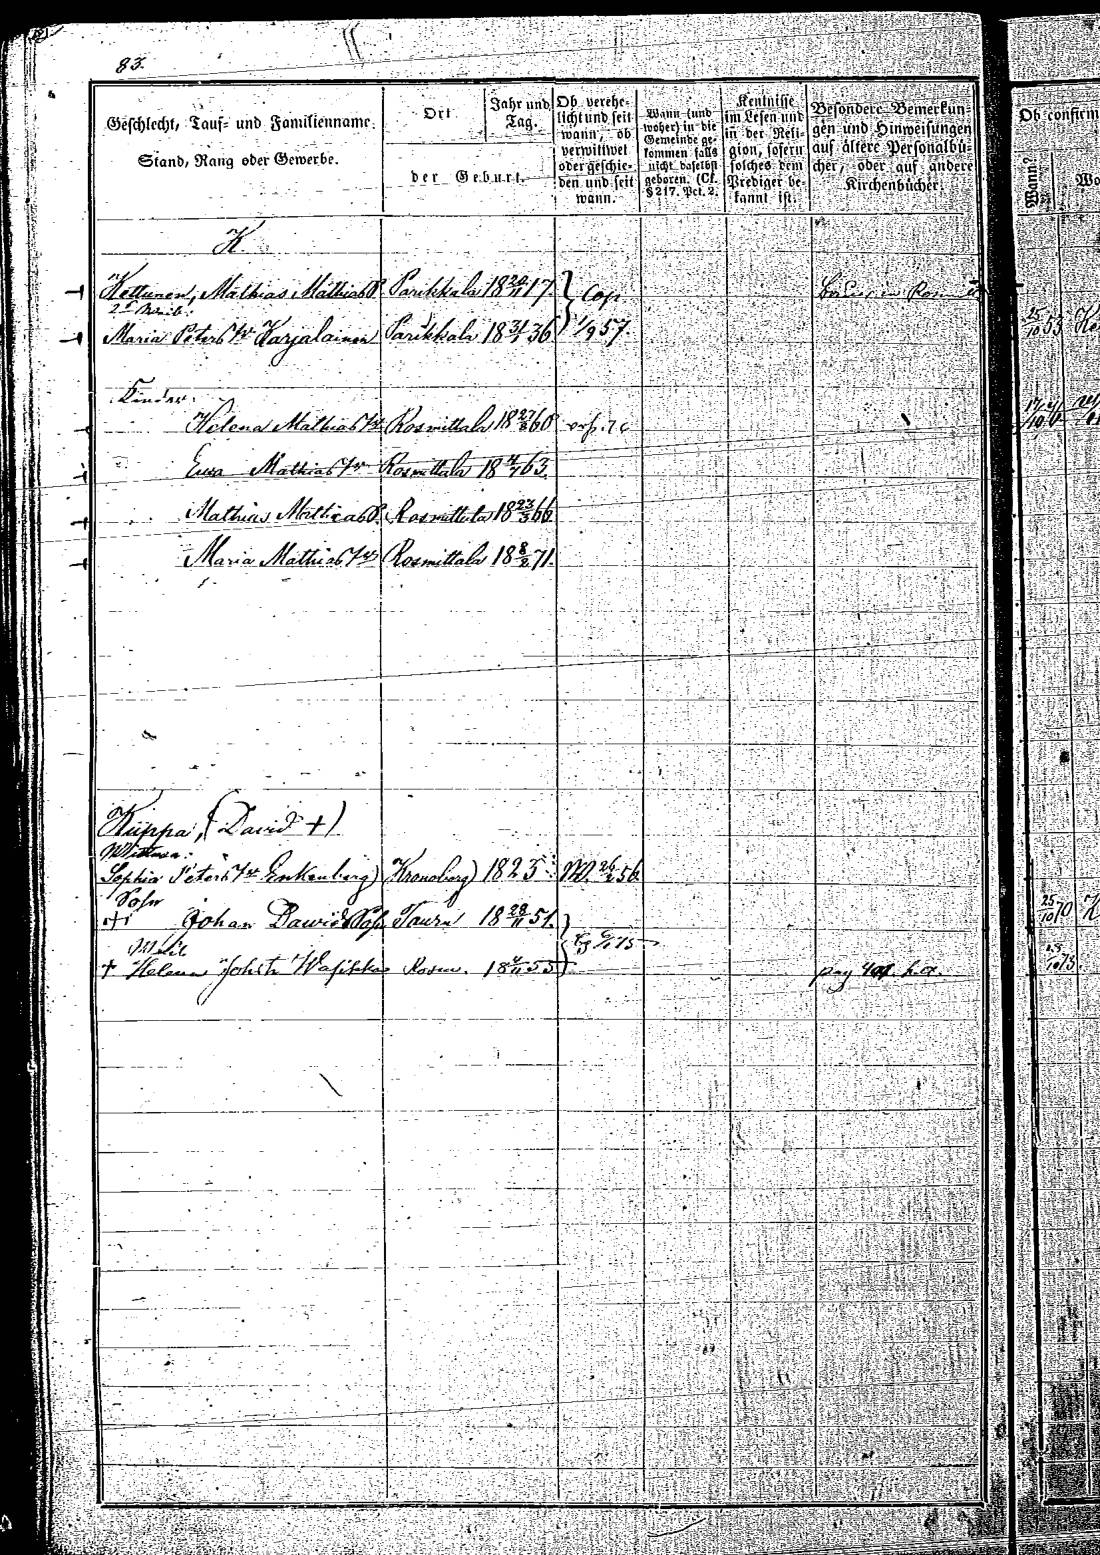 83.
Geschlecht, Tauf- und Familienname.
Stand, Rang oder Gewerbe.
Ort
Jahr und Tag.
der Geburt.
Ob verehe-
licht und seit
wann, ob
verwittwet
oder geschie-
den und seit
wann.
Wann (und
woher) in die
Gemeinde ge-
kommen falls
nicht daselbst
geboren. (Cf.
§ 217. Pct. 2.
Kentnisse
im Lesen und
in der Reli-
gion, sofern
solches dem
Prediger be-
kannt ist.
Besondere Bemerkun-
gen und Hinweisungen
auf ältere Personalbü-
cher, oder auf andere
Kirchenbücher.
Ob confirm
Wann?
Wo
K.
Kettunen, Mathias Mathias S. Parikkala 18 20/11 17. Cop
2te Weib:
Maria Peters Tr Karjalainen Parikkala 18 31/1 36 1/9 57. 25/10 53
Kinder:
Helena Mathias Tr Rosmittala 18 27/8 60
Ewa Mathias Tr Rosmittala 18 4/7 63.
Mathias Mathias S. Rosmittala 18 23/3 66
Maria Mathias Tr Rosmittala 18 8/2 71.
Kiippa, (David +)
Wittwe:
Sophia Peters Tr Enkenberg) Kronoborg) 1825 W. 26/2 56
Sohn
+ Johan Dawids Sohn Tauru 18 28/11 51. 25/10 70
Weib
+ Helena Johs Tr Rosm. 18 4/11 55 pag 404. h.a.